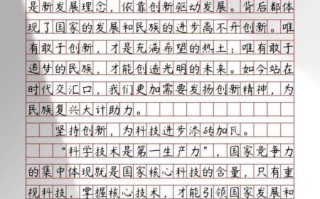 是新发展理念，依靠创新驱动发展。背后都体
现了国家的发展和民族的进步离不开创新。唯
有敢于创新，才是充满希望的热土；唯有敢于
追梦的民族，才能创造光明的未来。如今站在
时代交汇口，我们更加需要发扬创新精神，为
民族复兴大计助力。
坚持创新，为科技进步添砖加瓦。
“科学技术是第一生产力”，国家竞争力
的集中体现就是国家核心科技的含量，只有重
视科技，掌握核心技术，才能引领国家发展和